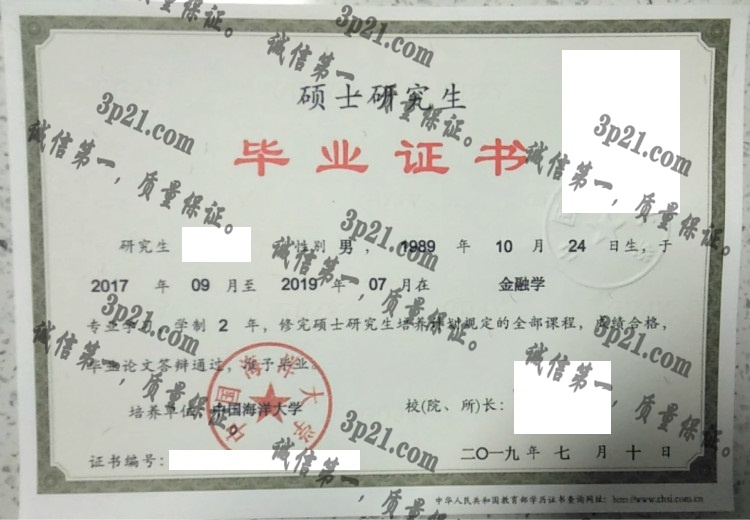 硕士研究生
毕业证书
研究生 性别 男，1989 年 10 月 24 日生，于
2017 年 09 月至 2019 年 07 月在 金融学
专业学习，学制 2 年，修完硕士研究生培养计划规定的全部课程，成绩合格，
毕业论文答辩通过，准予毕业。
培养单位：中国海洋大学 校(院、所)长：
中国海洋大学
证书编号： 二〇一九年 七 月 十 日
中华人民共和国教育部学历证书查询网址：http://www.chsi.com.cn
3p21.com
诚信第一，质量保证。
3p21.com
诚信第一，质量保证。
3p21.com
诚信第一，质量保证。
3p21.com
诚信第一，质量保证。
3p21.com
诚信第一，质量保证。
3p21.com
诚信第一，质量保证。
3p21.com
诚信第一，质量保证。
3p21.com
诚信第一，质量保证。